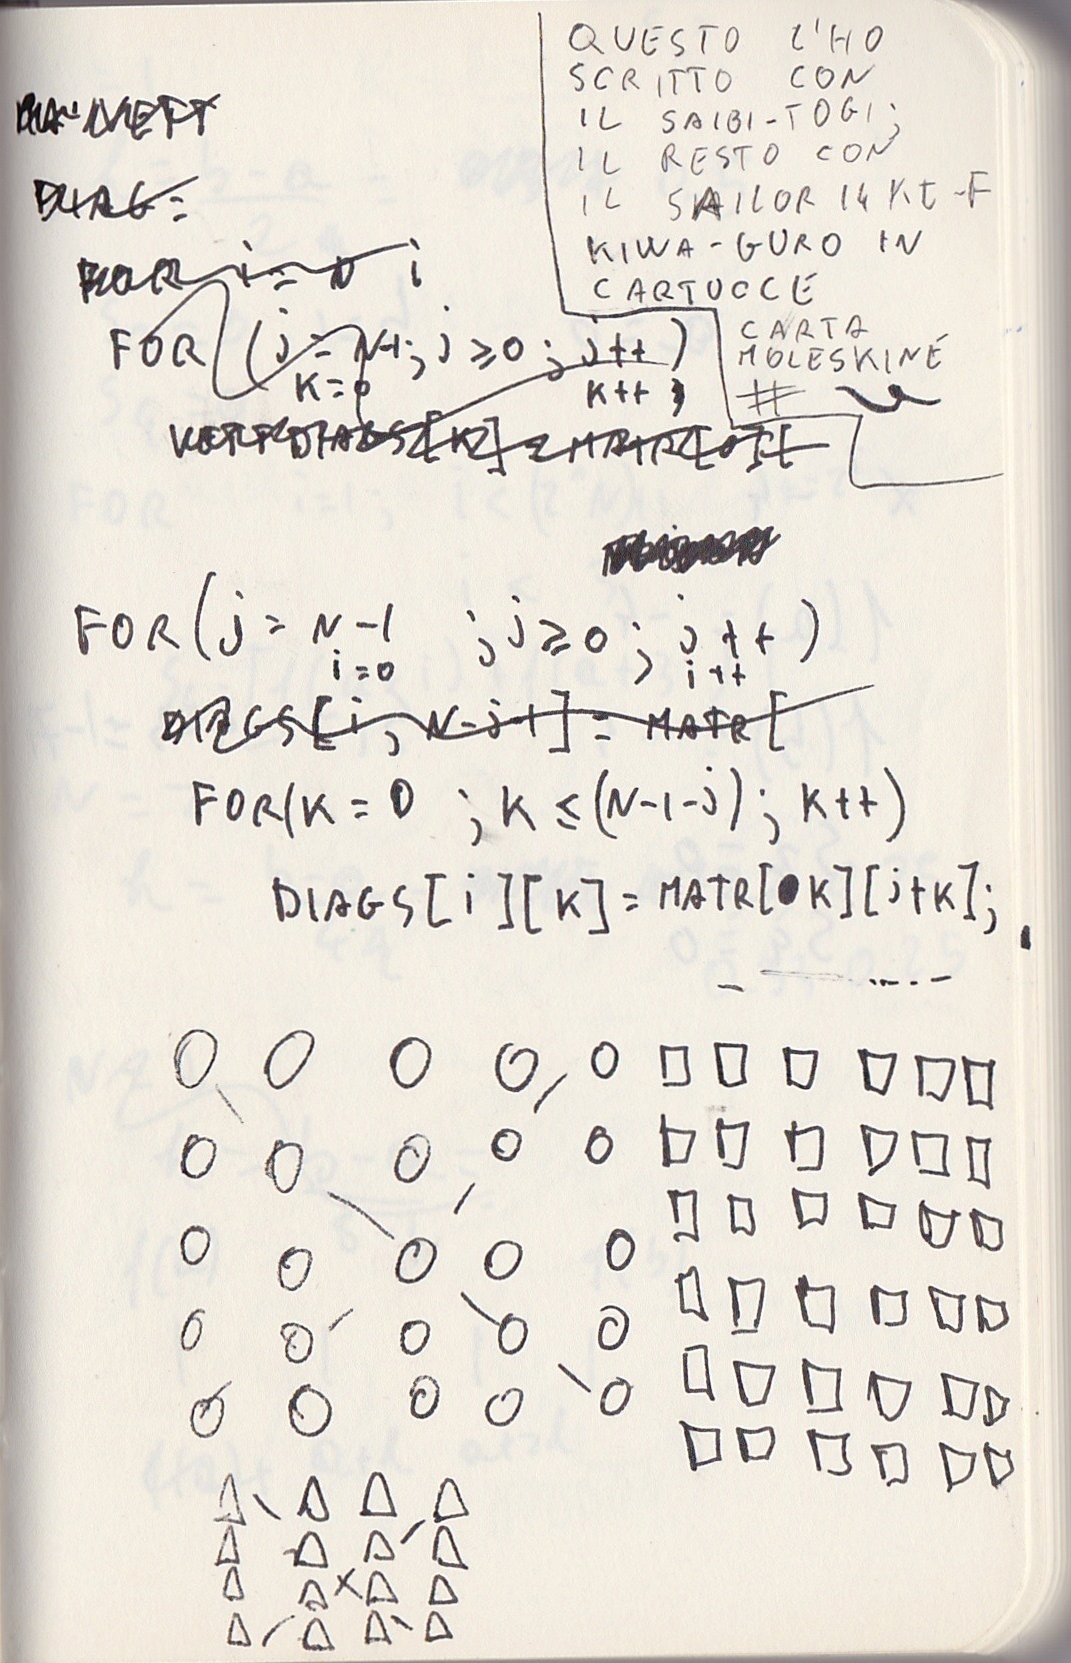 QUESTO L'HO
SCRITTO CON
IL SAIBI-TOGI;
IL RESTO CON
IL SAILOR 14 KT-F
KIWA-GURO IN
CARTUCCE
CARTA
MOLESKINE
DIAG=
FOR i = N i
FOR (j = N-1; j ≥ 0; j++)
K=0 K++;
DIAGS[K] = MATR[0][
FOR (j = N-1 ; j ≥ 0 ; j++)
i=0 ; i++
DIAGS[i, N-j-1] = MATR[
FOR (K = 0 ; K ≤ (N-1-j) ; K++)
DIAGS[i][K] = MATR[K][j+K];